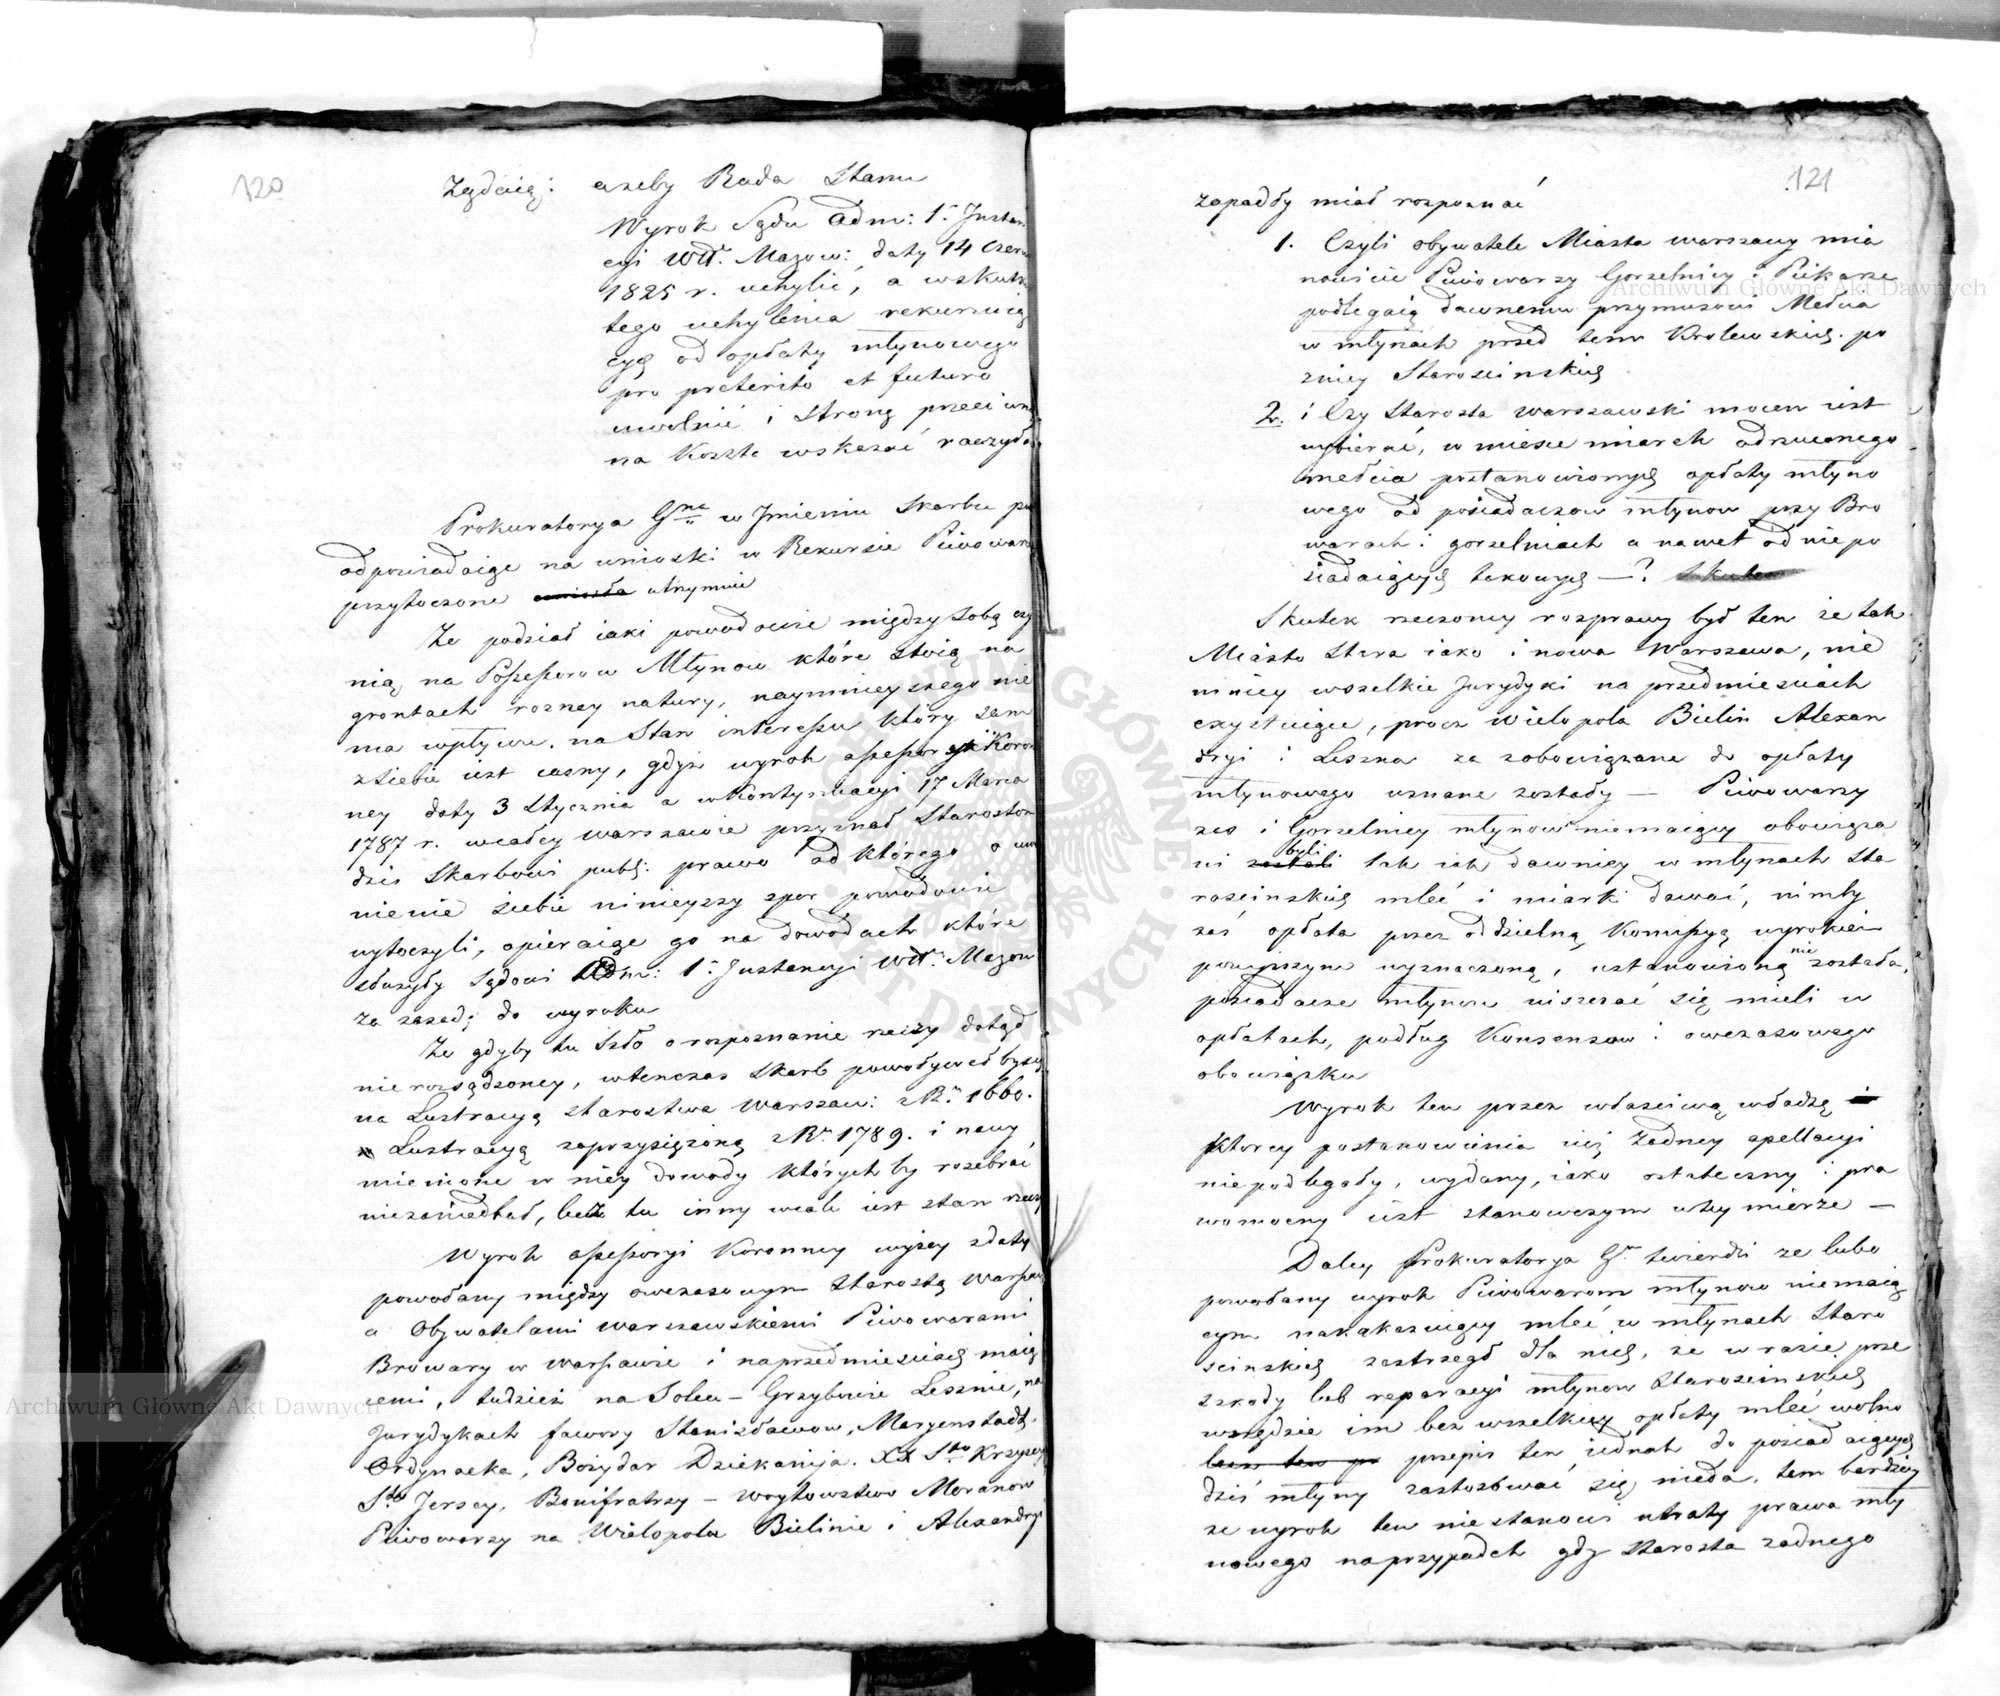 120
Żądaią: ażeby Rada Stanu
Wyrok Sądu Adm: 1. Instan
cyi Wdt. Mazow: daty 14 Czerw
1825 r. uchylić, a wskutk
tego uchylenia rekursuią
cyę od opłaty młynowego
pro preterito et futuro
uwolnić i stronę przeciwną
na koszta wskazać raczyła
Prokuratorya Gna w Jmieniu Skarbu pu
odpowiadaiąc na wnioski w Rekursie Piwowarów
przytoczone utrzymuie
Że podział iaki powodowie między sobą czy
nią na Possessorów Młynow które stoią na
grontach rozney natury, naymnieyszego nie
ma wpływu na Stan interessu który sam
z siebie iest iasny, gdyż wyrok assessorski Koron
ney daty 3 Stycznia a w Kontynuacyi 17 Marca
1787 r. w całey warszawie przyznał Starostom
dziś Skarbowi publ: prawo od którego o uwol
nienie siebie ninieyszy spor powodowie
wytoczyli, opieraiąc go na dowodach które
służyły Sądowi Adm: 1. Justancyi Wdt. Mazow
za zasadę do wyroku
Że gdyby tu szło o rozpoznanie rzeczy dotąd
nierozsądzoney, wtenczas Skarb powoływałby się
na Lustracyą starostwa Warszaw: z R. 1660.
Lustracyą zaprzysiężoną z R. 1789. i nawy
mienione w niey dowody których by rozebrać
niezaniedbał, lecz tu inny wcale iest stan rzeczy
Wyrok assessoryi Koronney wyżey z daty
powołany między owczasowym Starostą Warszaw
a Obywatelami Warszawskiemi Piwowarami
Browary w Warszawie i na przedmieściach maią
cemi, tudzież na Solcu – Grzybowie Lesznie, na
Jurydykach fawory Stanisławow, Maryenstadt,
Ordynacka, Bożydar Dziekanija. XX Sto Krzyscy
Sto Jerscy, Bonifratrzy – Woytowstwo Moranow
Piwowarzy na Wielopolu Bielinie i Alexandryi
121
zapadły miał rozpoznać
1. Czyli obywatele Miasta warszawy mia
nowicie Piwowarzy Gorzelnicy i Piekarze
podlegaią dawnemu przymusowi Mełcia
w młynach przed tem Krolewskich po
zniey Starościnskich
2. i Czy Starosta warszawski mocen iest
wybierać, w miesce miarek odrzuconego
mełcia postanowionych opłaty młyno
wego od posiadaczow młynow przy Bro
warach i gorzelniach a nawet od niepo
siadaiących takowych —? Skutem
Skutek rzeczoney rozprawy był ten że tak
Miasto Stara iako i nowa Warszawa, nie
mniey wszelkie Jurydyki na przedmiesciach
exystuiące, procz Wielopola Bielin Alexan
dryi i Leszna za zobowiązane do opłaty
młynowego uznane zostały — Piwowarzy
zas i Gorzelnicy młynow niemaiący obowiąza
ni zostali byli tak iak dawniey w młynach Sta
rościnskich mleć i miarki dawać, nimby
zaś opłata przez oddzielną Komissyą wyrokiem
powyższym wyznaczoną, ustanowioną nie została,
posiadacze młynow uiszczać się mieli w
opłatach, podług Konsensow i owczasowego
obowiązku
Wyrok ten przez właściwą władzę
ktorey postanowienia iuż żadney apellacyi
niepodlegały, wydany, iako ostateczny i pra
womocny iest stanowczym w tey mierze —
Daley Prokuratorya Gna twierdzi że lubo
powołany wyrok Piwowarom młynow niemaią
cym nakazuiący mleć w młynach Staro
scinskich zastrzegł dla nich, że w razie prze
szkody lub reparacyi młynow Starościnskich
wszędzie im bez wszelkiey opłaty mleć wolno
lecz ten pr przepis ten iednak do posiadaiących
dziś młyny zastosować się nieda, tem bardziey
że wyrok ten niestanowi utraty prawa mły
nowego na przypadek gdy Starosta żadnego
Archiwum Główne Akt Dawnych
Archiwum Główne Akt Dawnych
ARCHIWUM GŁÓWNE AKT DAWNYCH